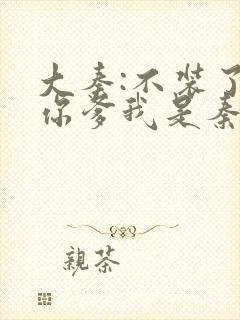 大秦:不装了
你爹我是秦
親茶